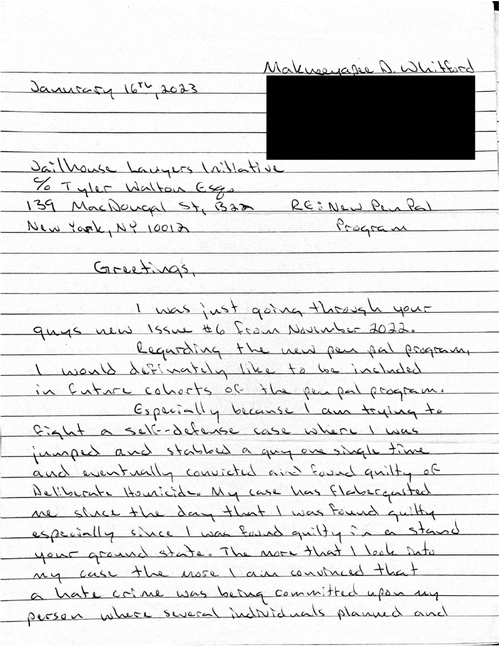 Makueeyapee D. Whitford
January 16th, 2023
Jailhouse Lawyers Initiative
c/o Tyler Walton Esq.
139 MacDougal St, B22 RE: New Pen Pal
New York, NY 10012 Program
Greetings,
I was just going through your
guys new Issue #6 from November 2022.
Regarding the new pen pal program,
I would definately like to be included
in future cohorts of the pen pal program.
Especially because I am trying to
fight a self-defense case where I was
jumped and stabbed a guy one single time
and eventually convicted and found guilty of
Deliberate Homicide. My case has flabergasted
me since the day that I was found guilty
especially since I was found guilty in a stand
your ground state. The more that I look into
my case the more I am convinced that
a hate crime was being committed upon my
person where several individuals planned and